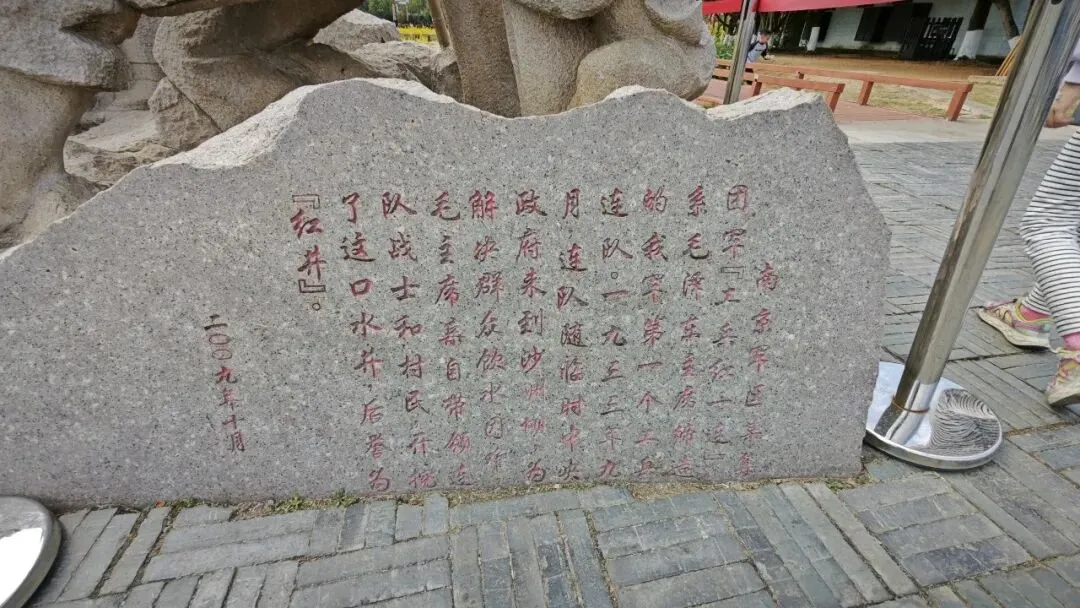 南京军区某集
团军『工兵红一连』
系毛泽东主席缔造
的我军第一个工兵
连队。一九三三年九
月，连队随临时中央
政府来到沙洲坝，为
解决群众饮水困难
毛主席亲自带领连
队战士和村民，开挖
了这口水井，后誉为
『红井』。
二00九年十月